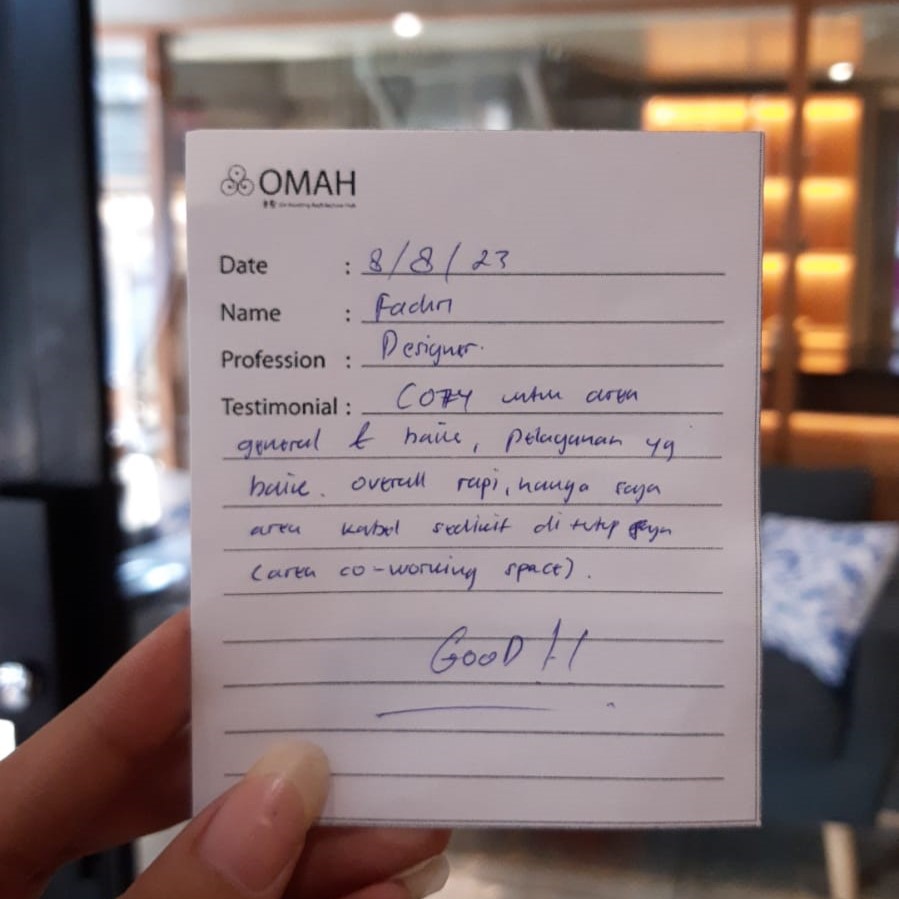 OMAH
Date : 8/8/23
Name : Fadhri
Profession : Designer.
Testimonial : Cozy untuk area
general & baik, pelayanan yg
baik. overall rapi, hanya saja
area kabel sedikit di tutup saja
(area co-working space).
GOOD !!